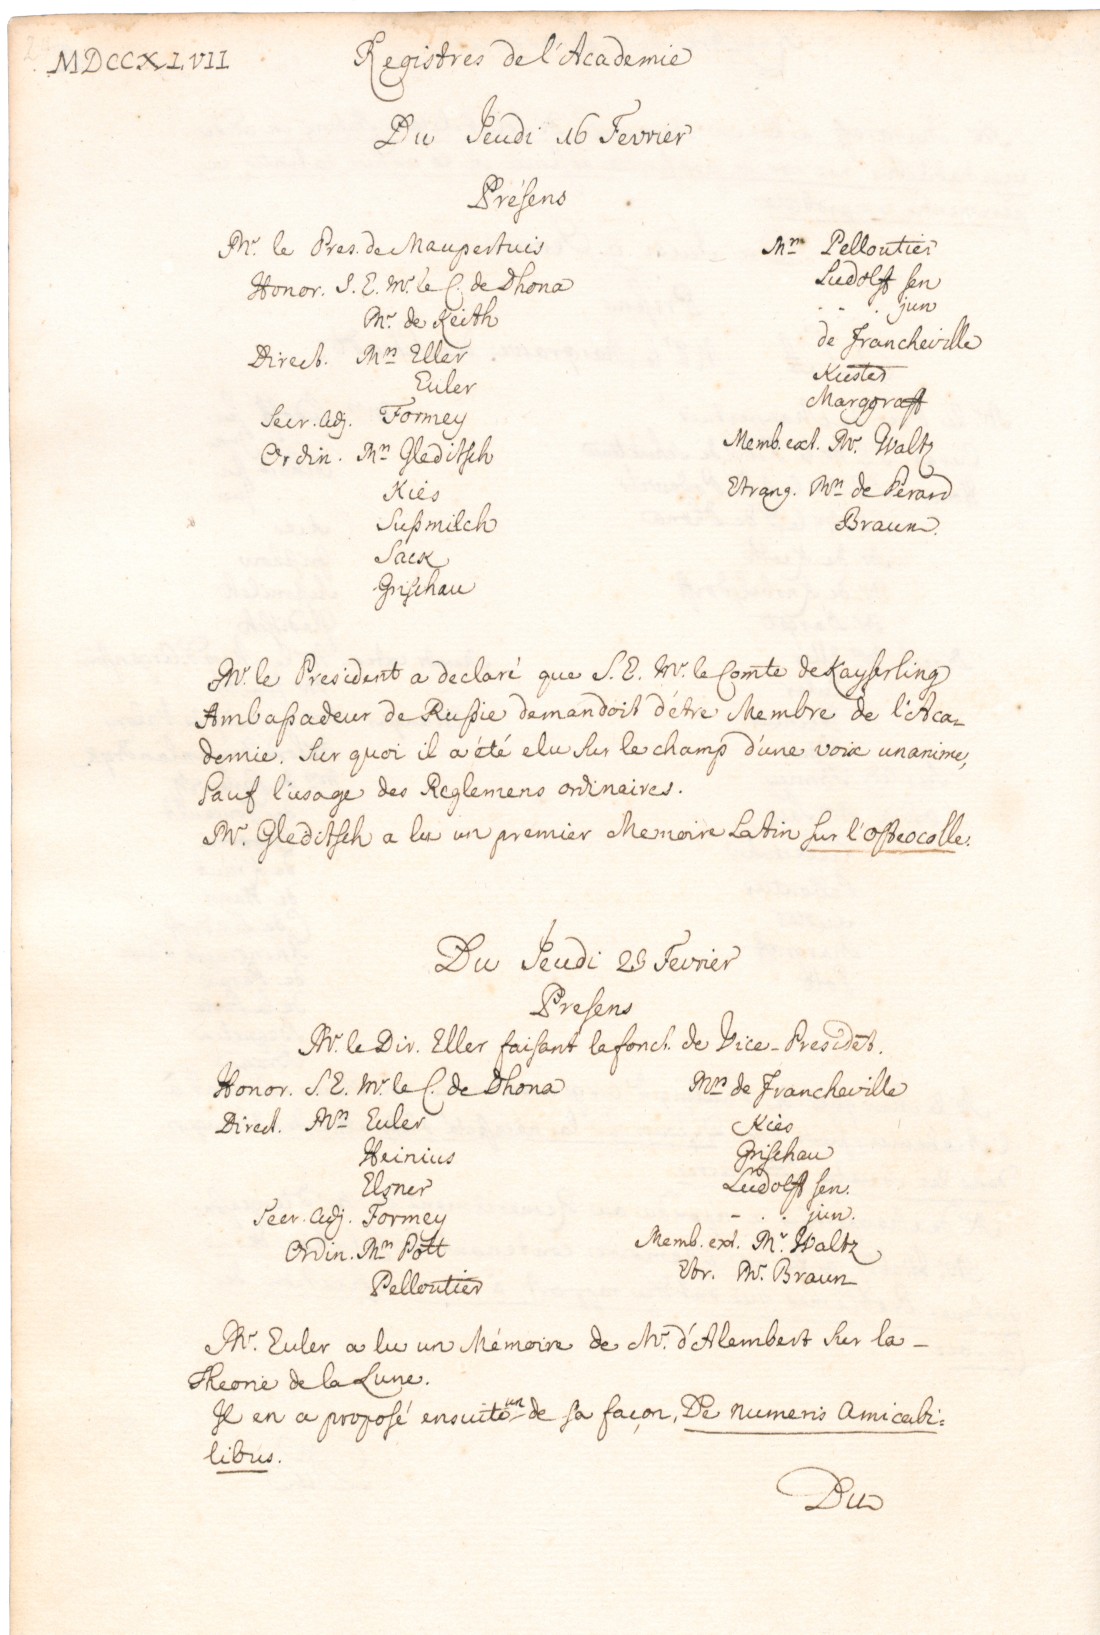 MDCCXLVII
Registres de l'Academie
Du Jeudi 16 Fevrier
Présens
Mr. le Pres. de Maupertuis
Honor. S. E. Mr. le C. de Dhona
Mr. de Keith
Direct. Mrs Eller
Euler
Secr. Adj. Formey
Ordin. Mrs Gleditsch
Kies
Sußmilch
Sack
Grischau
Mrs Pelloutier
Ludolff sen
- . . jun
de Francheville
Küster
Marggraff
Memb. ext. Mr. Waltz
Etrang. Mrs de Perard
Braun.
Mr. le President a declaré que S. E. Mr. le Comte de Kayserling
Ambaßadeur de Rußie demandoit d'étre Membre de l'Aca-
demie. Sur quoi il a été elu sur le champ d'une voix unanime,
sauf l'usage des Reglemens ordinaires.
Mr. Gleditsch a lu un premier Memoire Latin sur l'osteocolle.
Du Jeudi 23 Fevrier
Presens
Mr. le Dir. Eller faisant la fonct. de Vice-Presidet.
Honor. S. E. Mr. le C. de Dhona
Direct. Mrs Euler
Heinius
Elsner
Secr. Adj. Formey
Ordin. Mrs Pott
Pelloutier
Mrs de Francheville
Kies
Grischau
Ludolff sen.
- . . jun.
Memb. ext. Mr. Waltz
Etr. Mr. Braun
Mr. Euler a lu un Mémoire de Mr. d'Alembert sur la -
Theorie de la Lune.
Il en a proposé ensuite un de sa façon, De numeris Amicabi=
libus.
Du